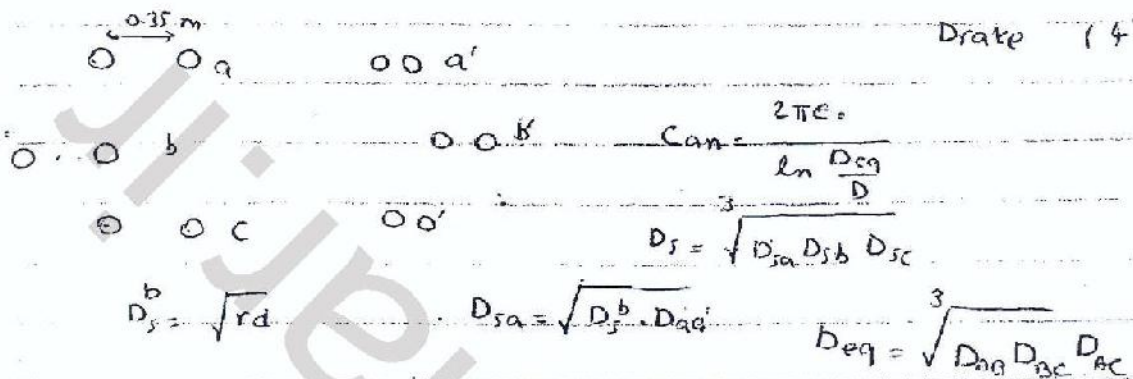 0.35 m
Drake (4
a a'
b b' Can = 2πε₀ / ln Deq/D
c Ds = ∛ Dsa Dsb Dsc
Dsᵇ = √rd Dsa = √Dsᵇ . Daa' Deq = ∛ DAB DBC DAC